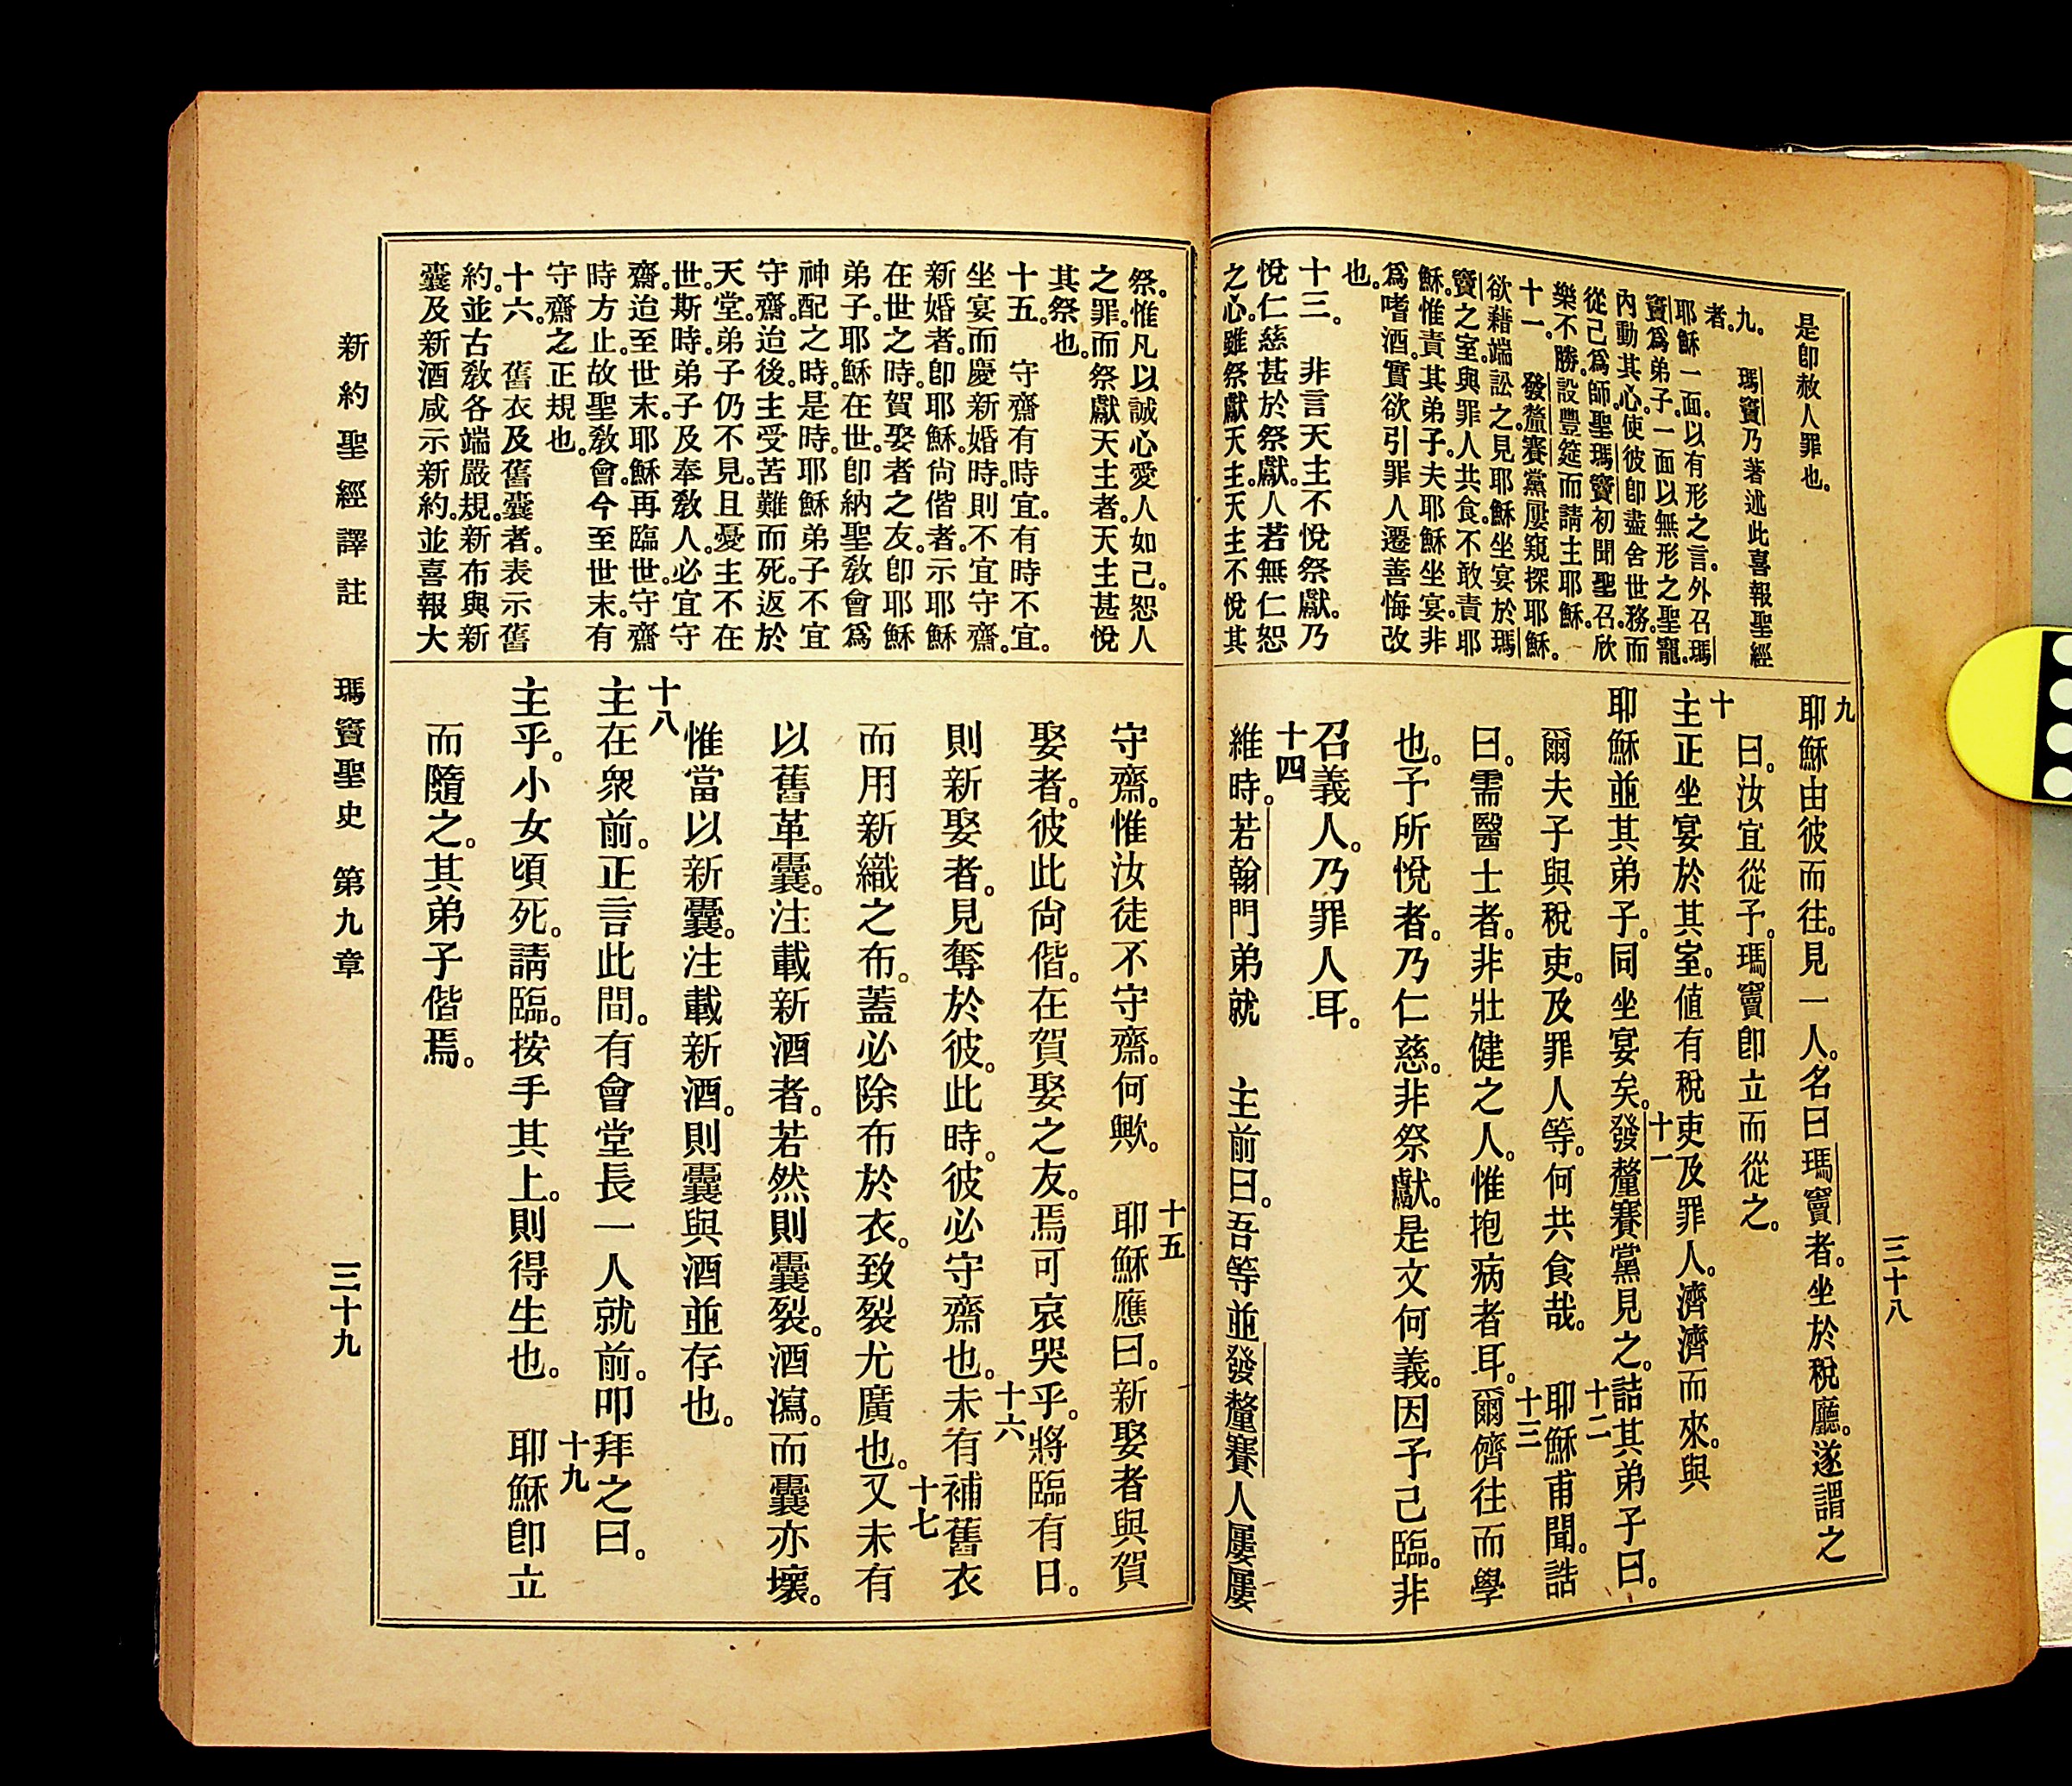 三十八
是卽赦人罪也。
九。　瑪竇乃著述此喜報聖經
者。
耶穌一面。以有形之言。外召瑪
竇爲弟子。一面以無形之聖寵。
內動其心。使彼卽盡舍世務。而
從己爲師。聖瑪竇初聞聖召。欣
樂不勝。設豐筵而請主耶穌。
十一。　發釐賽黨屢窺探耶穌。
欲藉端訟之。見耶穌坐宴於瑪
竇之室。與罪人共食。不敢責耶
穌。惟責其弟子。夫耶穌坐宴。非
爲嗜酒。實欲引罪人遷善悔改
也。
十三。　非言天主不悅祭獻。乃
悅仁慈甚於祭獻。人若無仁恕
之心。雖祭獻天主。天主不悅其
九
耶穌由彼而往。見一人。名曰瑪竇者。坐於稅廳。遂謂之
曰。汝宜從予。瑪竇卽立而從之。
十
主正坐宴於其室。値有稅吏及罪人。濟濟而來。與
耶穌並其弟子。同坐宴矣。十一發釐賽黨見之。詰其弟子曰。
爾夫子與稅吏。及罪人等。何共食哉。十二耶穌甫聞。誥
曰。需醫士者。非壯健之人。惟抱病者耳。十三爾儕往而學
也。予所悅者。乃仁慈。非祭獻。是文何義。因予己臨。非
召義人。乃罪人耳。
十四
維時。若翰門弟就　主前曰。吾等並發釐賽人屢屢
祭。惟凡以誠心愛人如己。恕人
之罪。而祭獻天主者。天主甚悅
其祭也。
十五。　守齋有時宜。有時不宜。
坐宴而慶新婚時。則不宜守齋。
新婚者。卽耶穌。尙偕者。示耶穌
在世之時。賀娶者之友。卽耶穌
弟子。耶穌在世。卽納聖敎會爲
神配之時。是時。耶穌弟子不宜
守齋。迨後。主受苦難而死。返於
天堂。弟子仍不見。且憂主不在
世。斯時。弟子及奉敎人。必宜守
齋。迨至世末。耶穌再臨世。守齋
時方止。故聖敎會。今至世末。有
守齋之正規也。
十六。　舊衣及舊囊者。表示舊
約。並古敎各端嚴規。新布與新
囊及新酒咸示新約。並喜報大
守齋。惟汝徒不守齋。何歟。十五耶穌應曰。新娶者與賀
娶者。彼此尙偕。在賀娶之友。焉可哀哭乎。將臨有日。
則新娶者。見奪於彼。此時。彼必守齋也。十六未有補舊衣
而用新織之布。蓋必除布於衣。致裂尤廣也。十七又未有
以舊革囊。注載新酒者。若然則囊裂。酒瀉。而囊亦壞。
惟當以新囊。注載新酒。則囊與酒並存也。
十八
主在衆前。正言此間。有會堂長一人就前。叩拜之曰。
主乎。小女頃死。請臨。按手其上。則得生也。十九耶穌卽立
而隨之。其弟子偕焉。
新約聖經譯註　瑪竇聖史　第九章　三十九